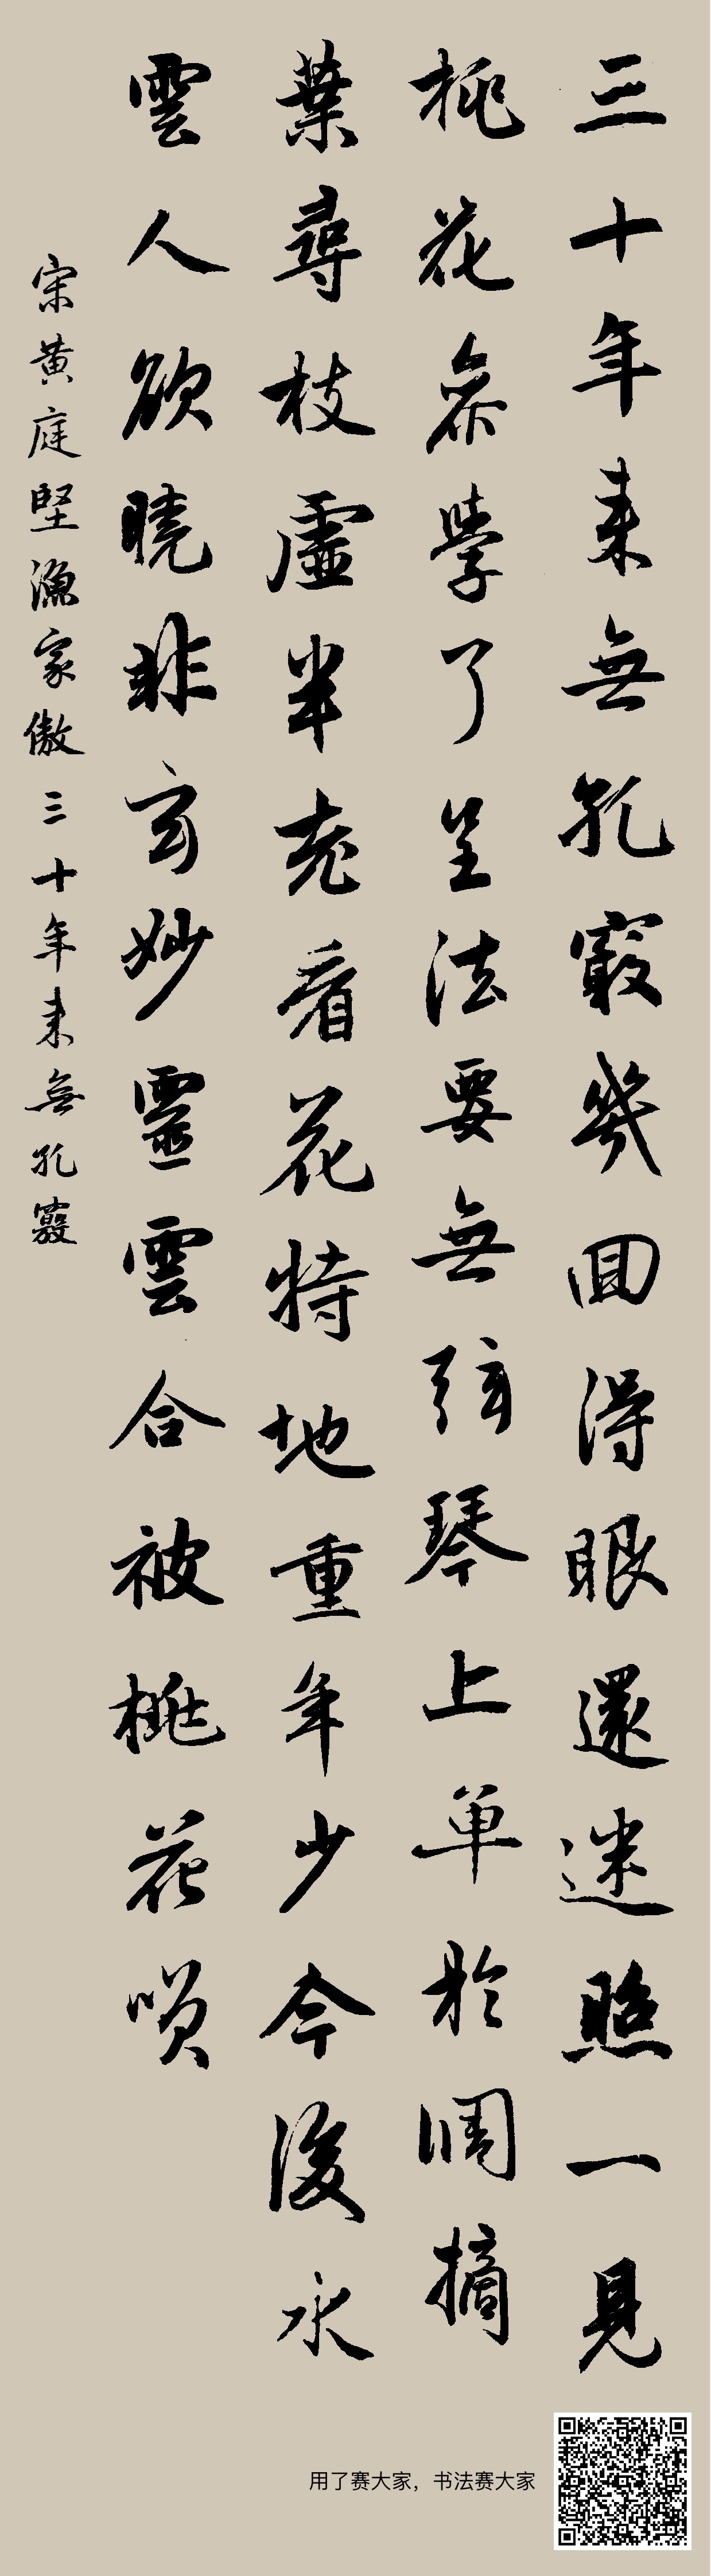 三十年来無孔竅幾回得眼還迷照一見
桃花叅學了呈法要無弦琴上単於調摘
葉尋枝虛半老看花特地重年少今後水
雲人欲曉非玄妙靈雲合被桃花咲
宋黄庭堅漁家傲三十年来無孔竅
用了赛大家，书法赛大家